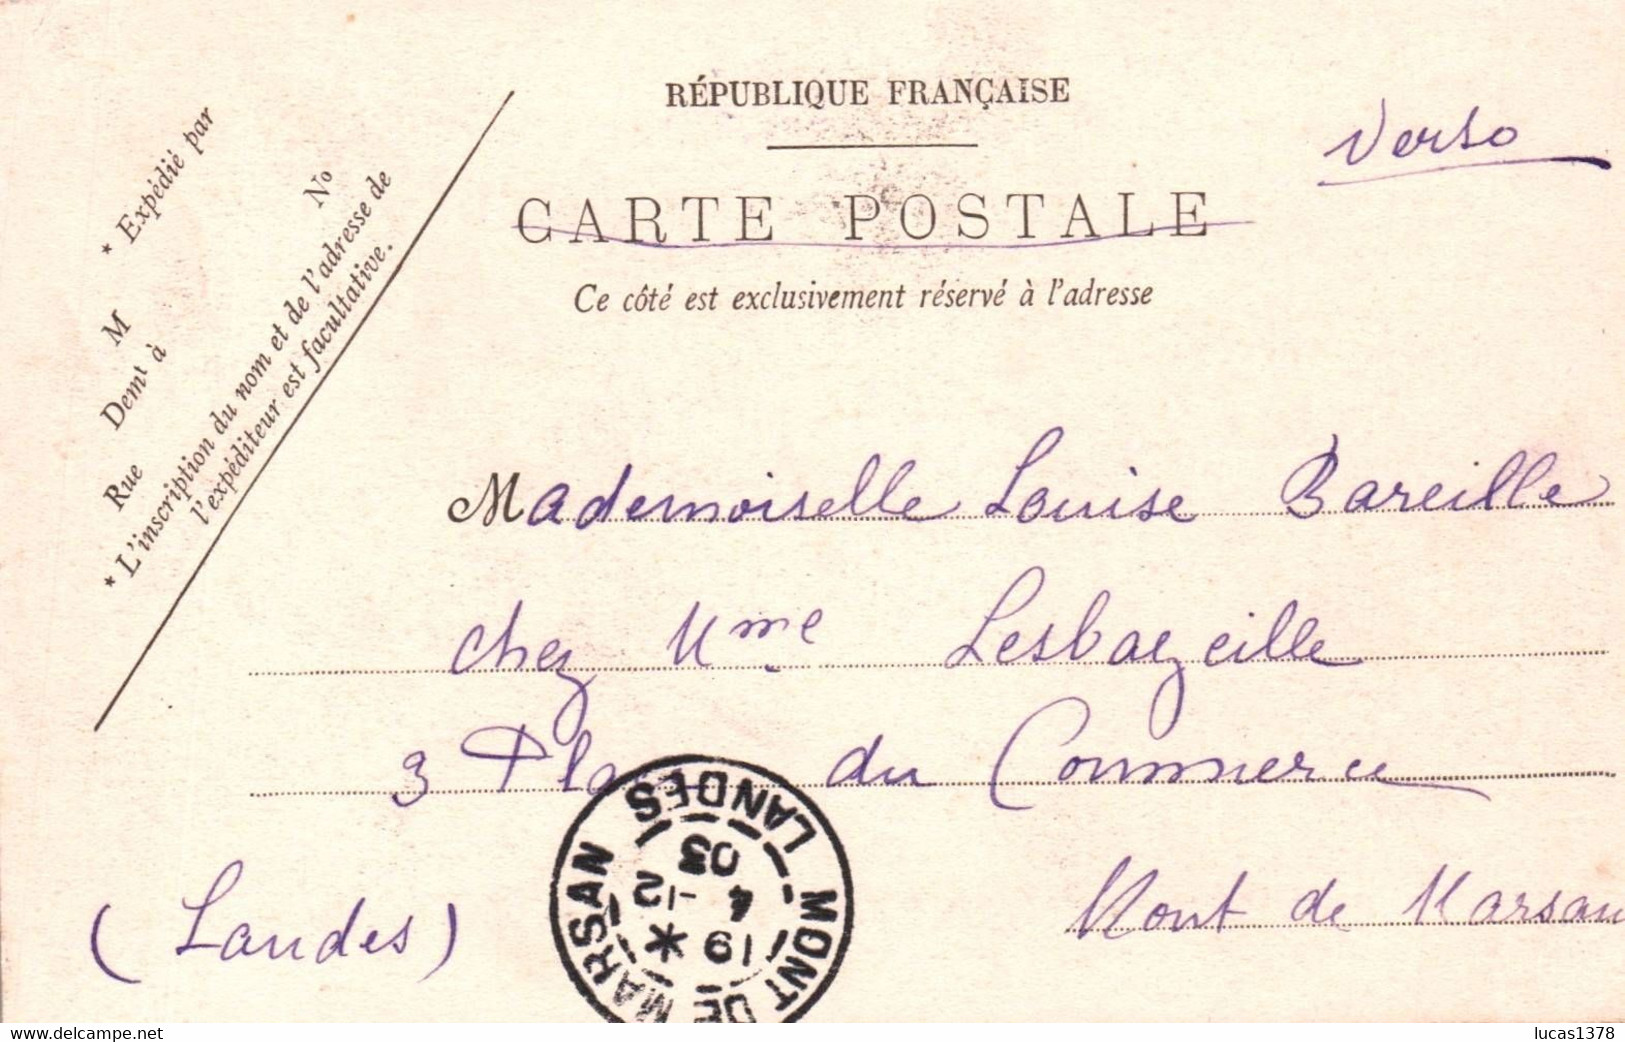 RÉPUBLIQUE FRANÇAISE
Verso
CARTE POSTALE
Ce côté est exclusivement réservé à l'adresse
* Expédié par
M
Demt à
Rue
No
* L'inscription du nom et de l'adresse de
l'expéditeur est facultative.
Mademoiselle Louise Bareille
chez Mme Lesbazeille
3 Place du Commerce
Mont de Marsan
(Landes)
MONT DE MARSAN LANDES
19 *
4 -12
03
delcampe.net
lucas1378